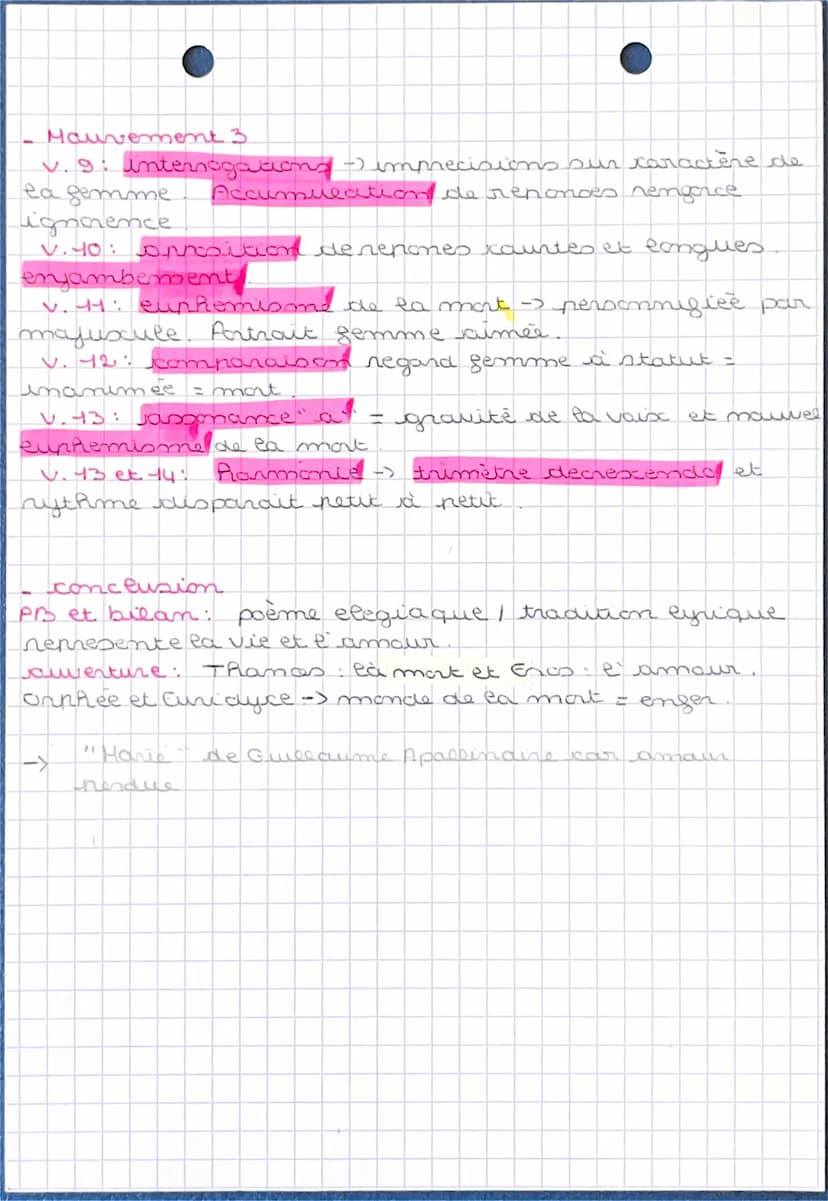 - Mouvement 3
v. 9: interrogations -> imprecisions sur caractère de
la femme. Accumulation de reponses renforce
ignorence
v. 10: opposition de repones courtes et longues.
enjambement.
v. 11: euphemisme de la mort -> personnifiée par
majuscule. Portrait femme aimée.
v. 12: comparaison regard femme à statut =
inanimée = mort.
v. 13: assonance "a" = gravité de la voix et nouvel
euphemisme de la mort
v. 13 et 14: Harmonie -> trimètre decrescendo et
rythme disparait petit à petit.
- conclusion
PB et bilan: poème elegiaque / tradition lyrique
represente la vie et l'amour.
ouverture: Thanos: la mort et Eros: l'amour.
Orphée et Euridyce -> monde de la mort = enfer.
-> "Marie" de Guillaume Apallinaire car amour
perdue